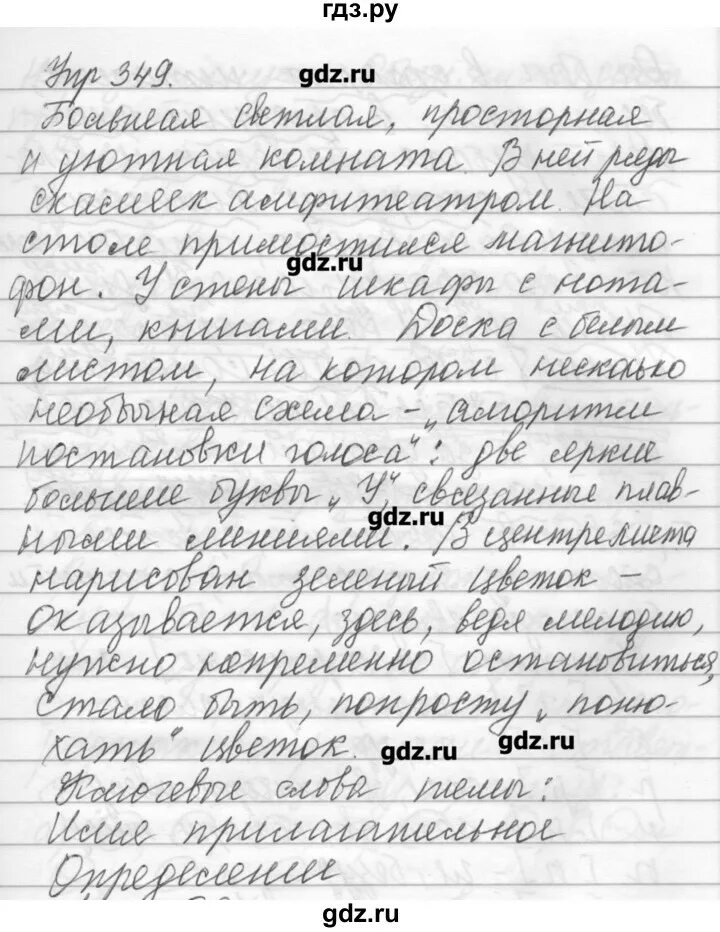 гдз.ру
Упр 349.
gdz.ru
Большая светлая, просторная
и уютная комната. В ней ряды
скамеек амфитеатром. На
столе примостился магнито-
gdz.ru
фон. У стены шкафы с нота-
ми, книгами. Доска с белым
листом, на котором несколько
необычная схема – „алгоритм
постановки голоса“: две яркие
большие буквы „У“, связанные плав-
gdz.ru
ными линиями. В центре листа
нарисован зеленый цветок –
оказывается, здесь, ведя мелодию,
нужно непременно остановиться,
стало быть, попросту „поню-
хать“ цветок.
gdz.ru
gdz.ru
Ключевые слова темы:
Имя прилагательное
Определении
gdz.ru